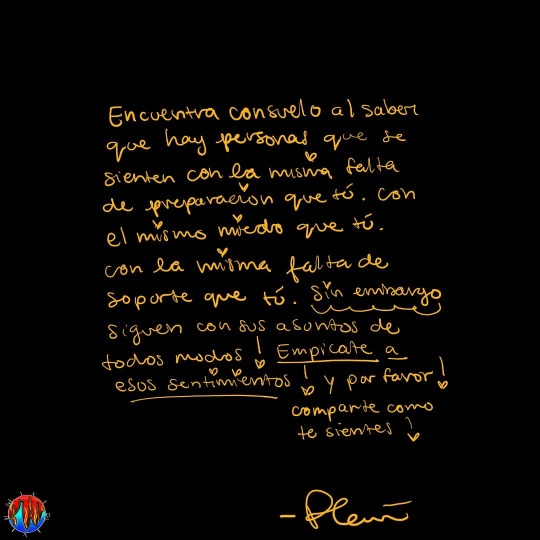 Encuentra consuelo al saber
que hay personas que se
sienten con la misma falta
de preparación que tú. con
el mismo miedo que tú.
con la misma falta de
soporte que tú. Sin embargo
siguen con sus asuntos de
todos modos! Empicate a
esos sentimientos! y por favor!
comparte como
te sientes!